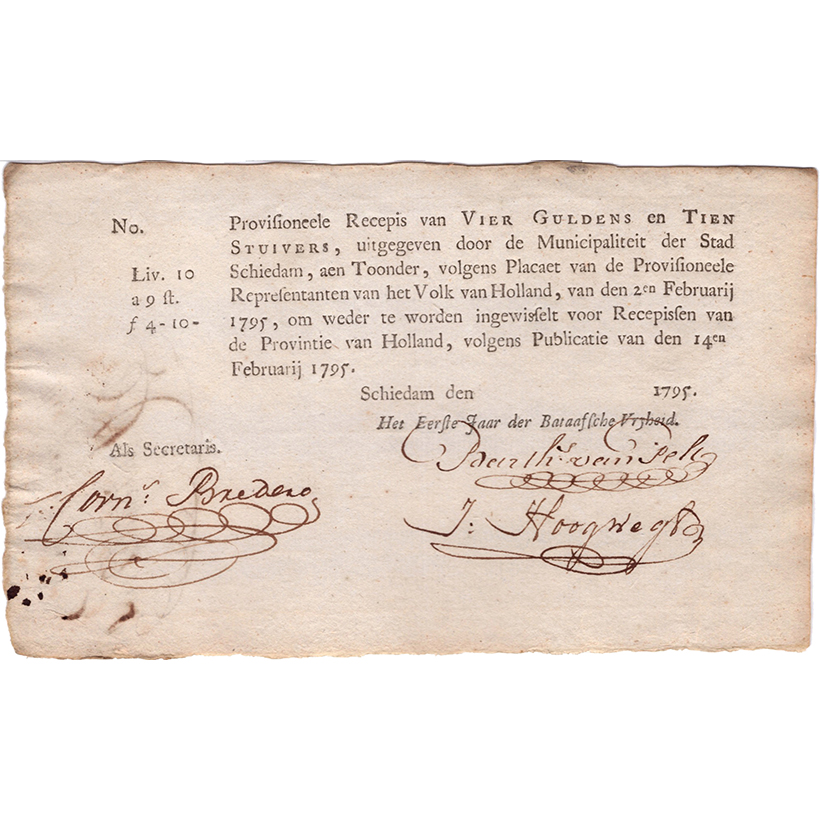 No.
Liv. 10
a 9 ſt.
ƒ 4-10-
Proviſioneele Recepis van VIER GULDENS en TIEN
STUIVERS, uitgegeven door de Municipaliteit der Stad
Schiedam, aen Toonder, volgens Placaet van de Proviſioneele
Repreſentanten van het Volk van Holland, van den 2en Februarij
1795, om weder te worden ingewiſſelt voor Recepiſſen van
de Provintie van Holland, volgens Publicatie van den 14en
Februarij 1795.
Schiedam den 1795.
Het Eerſte Jaar der Bataafſche Vrijheid.
Als Secretaris.
Corns. Bredero
Barths. van
J: Hoogwegt